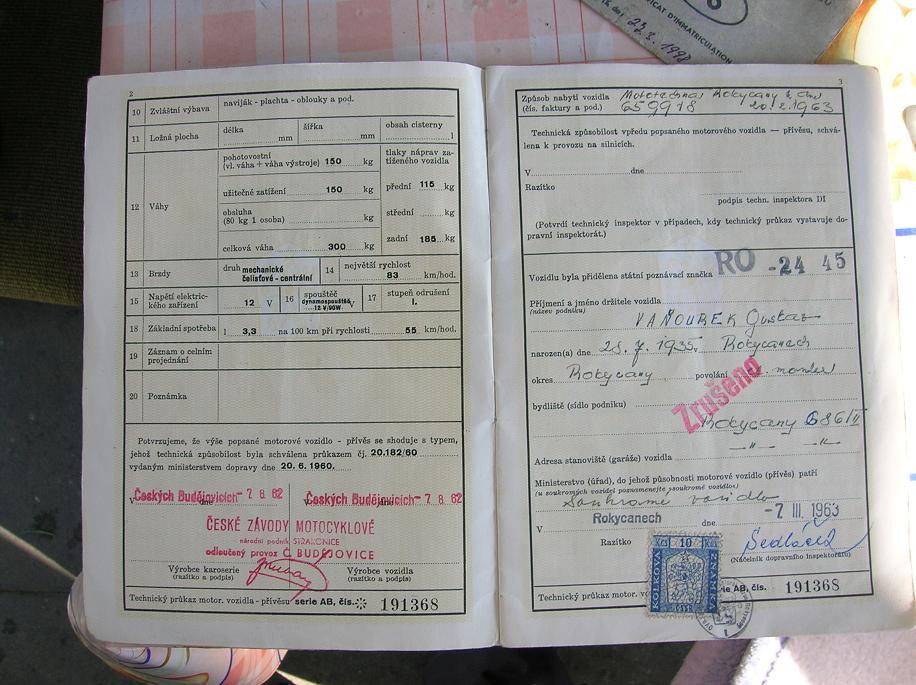 CERTIFICAT D'IMMATRICULATION
23.3.1998
2
10 Zvláštní výbava naviják - plachta - oblouky a pod.
11 Ložná plocha délka mm šířka mm obsah cisterny l
12 Váhy
pohotovostní
(vl. váha + váha výstroje) 150 kg
tlaky náprav zatíženého vozidla
užitečné zatížení 150 kg
přední 115 kg
obsluha
(80 kg 1 osoba) kg
střední kg
celková váha 300 kg
zadní 185 kg
13 Brzdy druh mechanické čelisťové - centrální 14 největší rychlost 83 km/hod.
15 Napětí elektrického zařízení 12 V 16 spouštěč dynamospouštěč 12 V/90W 17 stupeň odrušení I.
18 Základní spotřeba l 3,3 na 100 km při rychlosti 55 km/hod.
19 Záznam o celním projednání
20 Poznámka
Potvrzujeme, že výše popsané motorové vozidlo - přívěs se shoduje s typem,
jehož technická způsobilost byla schválena průkazem čj. 20.182/60
vydaným ministerstvem dopravy dne 20. 6. 1960.
V Českých Budějovicích - 7 8. 62 V Českých Budějovicích - 7 8. 62
ČESKÉ ZÁVODY MOTOCYKLOVÉ
národní podnik STRAKONICE
odloučený provoz Č. BUDĚJOVICE
Výrobce karoserie Výrobce vozidla
(razítko a podpis) (razítko a podpis)
Technický průkaz motor. vozidla - přívěsu serie AB, čís. 191368
3
Způsob nabytí vozidla Mototechna Rokycany
(čís. faktury a pod.) 659918 20.2.1963
Technická způsobilost vpředu popsaného motorového vozidla — přívěsu, schválena
k provozu na silnicích.
V dne
Razítko
podpis techn. inspektora DI
(Potvrdí technický inspektor v případech, kdy technický průkaz vystavuje dopravní
inspektorát.)
Vozidlu byla přidělena státní poznávací značka RO -24 45
Příjmení a jméno držitele vozidla
(název podniku)
VAŇOUREK Gustav
narozen(a) dne 25. 7. 1935. Rokycanech
okres Rokycany povolání
Zrušeno
bydliště (sídlo podniku)
Rokycany 686/II
Adresa stanoviště (garáže) vozidla -"- -"-
Ministerstvo (úřad), do jehož působnosti motorové vozidlo (přívěs) patří
(u soukromých vozidel poznamenejte »soukromé vozidlo«)
Soukromé vozidlo
V Rokycanech dne -7 III. 1963
Razítko Sedláček
(Náčelník dopravního inspektorátu)
KOLKOVÁ ZNÁMKA
Kčs 10 Kčs
Technický průkaz motor. vozidla serie AB, čís. 191368